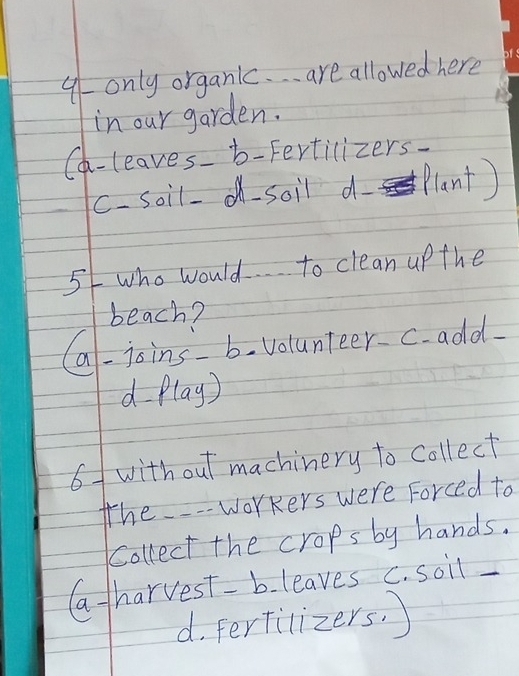 4- only organic....are allowed here
in our garden.
(a-leaves- b-Fertilizers-
c-soil- d-soil d- Plant)
5- who would..... to clean up the
beach?
(a- joins- b-volunteer- c-add-
d-Play)
6- without machinery to collect
the ---- workers were Forced to
collect the crops by hands.
(a-harvest- b.leaves c.soil -
d. Fertilizers.)